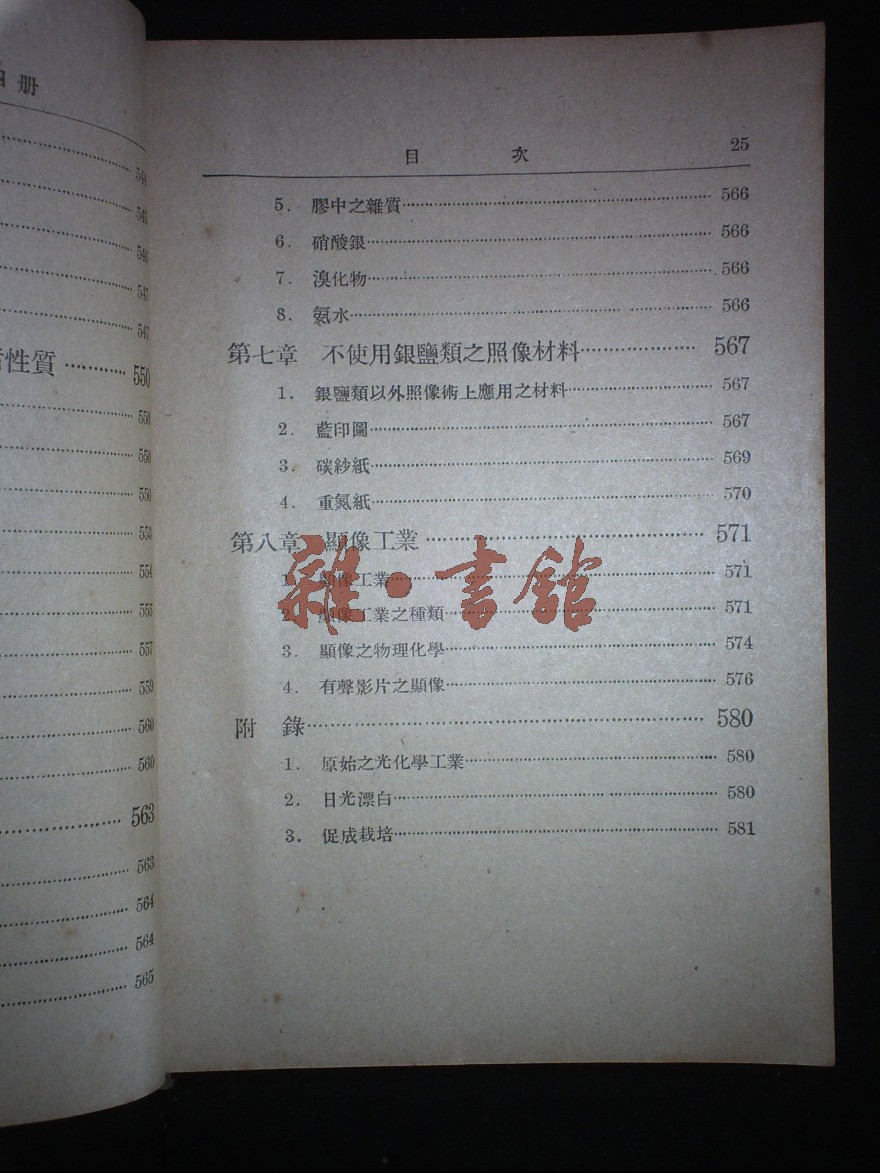 册
544
545
546
547
547
性質 ………… 550
550
550
550
553
554
555
557
559
560
560
563
563
564
564
565
目 次 25
5. 膠中之雜質 ………… 566
6. 硝酸銀 ………… 566
7. 溴化物 ………… 566
8. 氨水 ………… 566
第七章 不使用銀鹽類之照像材料 ………… 567
1. 銀鹽類以外照像術上應用之材料 ………… 567
2. 藍印圖 ………… 567
3. 碳紗紙 ………… 569
4. 重氮紙 ………… 570
第八章 顯像工業 ………… 571
1. 顯像工業 ………… 571
2. 顯像工業之種類 ………… 571
3. 顯像之物理化學 ………… 574
4. 有聲影片之顯像 ………… 576
附 錄 ………… 580
1. 原始之光化學工業 ………… 580
2. 日光漂白 ………… 580
3. 促成栽培 ………… 581
雜·書館